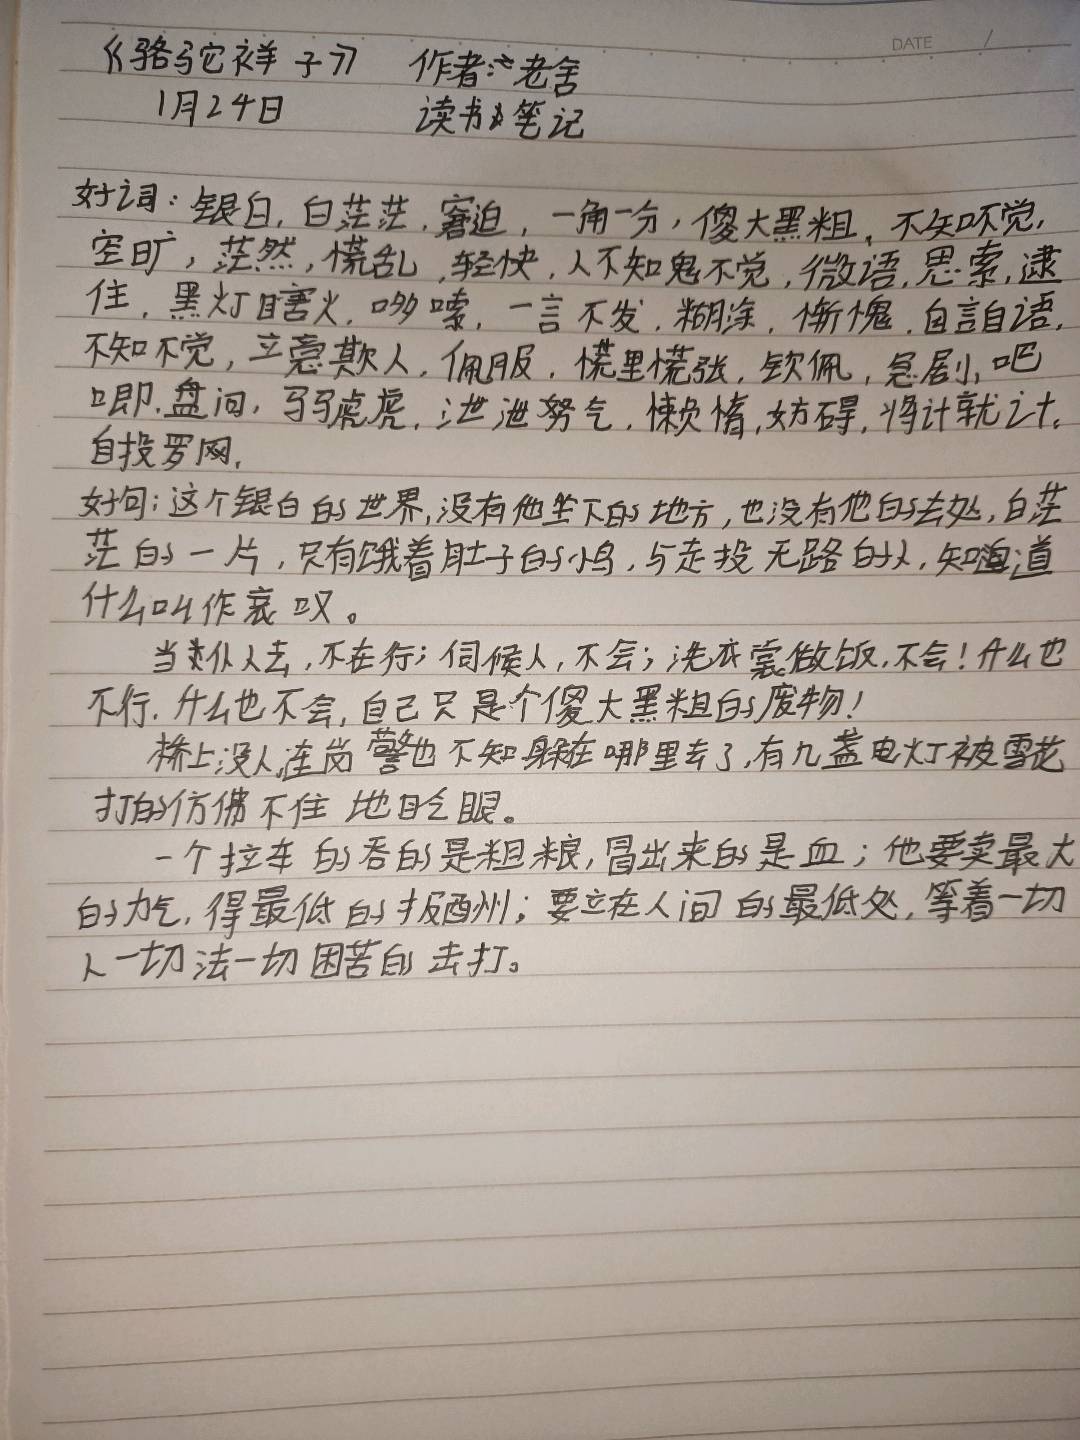 《骆驼祥子》 作者：老舍
DATE /
1月24日 读书笔记
好词：银白，白茫茫，窘迫，一角一分，傻大黑粗，不知不觉，
空旷，茫然，慌乱，轻快，人不知鬼不觉，微语，思索，逮
住，黑灯瞎火，哆嗦，一言不发，糊涂，惭愧，自言自语，
不知不觉，立意欺人，佩服，慌里慌张，钦佩，急剧，吧
唧，盘问，马马虎虎，泄泄努气，懒惰，妨碍，将计就计，
自投罗网，
好句：这个银白的世界，没有他坐下的地方，也没有他的去处，白茫
茫的一片，只有饿着肚子的小鸟，与走投无路的人，知道
什么叫作哀叹。
当仆人去，不在行；伺候人，不会；洗衣裳做饭，不会！什么也
不行，什么也不会，自己只是个傻大黑粗的废物！
桥上没人，连岗警也不知躲在哪里去了，有几盏电灯被雪花
打的仿佛不住地眨眼。
一个拉车的吞的是粗粮，冒出来的是血；他要卖最大
的力气，得最低的报酬；要立在人间的最低处，等着一切
人一切法一切困苦的击打。